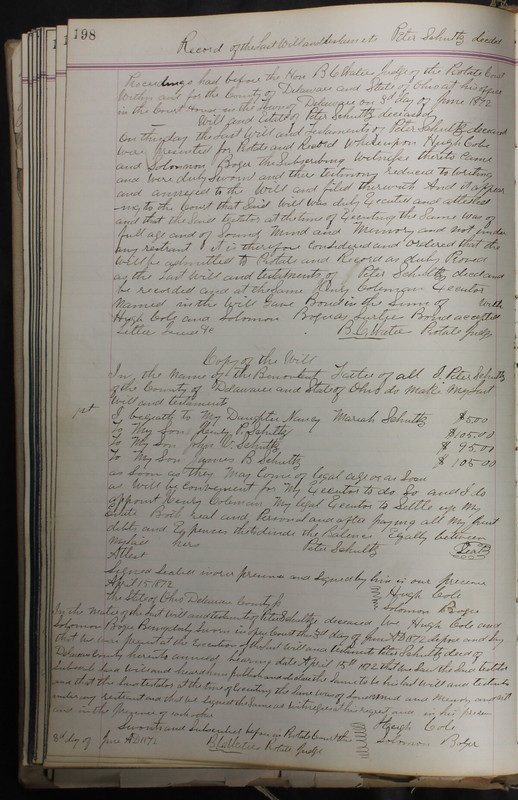 198
Record of the Last Will and testament Peter Schultz decd
Proceedings had before the Hon B C Waters Judge of the Probate Court
within and for the County of Delaware and State of Ohio at his office
in the Court House in the Town of Delaware on 3rd day of June 1872
Will and Estate of Peter Schultz deceased
On this day the Last Will and Testament of Peter Schultz deceased
was presented for Probate and Record Whereupon Hugh Cole
and Solomon Boger the Subscribing Witnesses thereto came
and were duly Sworn and there testimony reduced to Writing
and annexed to the Will and filed therewith And it appear
ing to the Court that Said Will was duly Executed and attested
and that the Said testator at the time of Executing the Same was of
full age and of Sound Mind and Memory and not under
any restraint it is therefore Considered and ordered that the
Will be admitted to Probate and Record as duly Proved
as the Last Will and testament of Peter Schultz deceased and
be recorded and at the Same Henry Coleman Executor
Named in the Will Gave Bond in the Sum of with
Hugh Cole and Solomon Boger as Bond accepted
Letter Issued &c B. C. Waters Probate Judge
Copy of the Will
In the Name of the Benevolent Father of all I Peter Schultz
of the County of Delaware and State of Ohio do Make My Last
Will and testament
1st I beqeath to My Daughter Nancy Mariah Schultz $5.00
To My Son Henry P. Schultz $105.00
To My Son W. Schultz $95.00
To My Son James B Schultz $105.00
as Soon as they May Come of legal age or as Soon
as Will by Convenient for My Executor to do So and I do
appoint Henry Coleman My legal Executor to Settle up My
Estate Both real and Personal and after paying all My Just
debts and Expences then divide the Balance Equally between
My hers Peter Schultz Seal
Attest
Signed Sealed in our presence and Signed by his in our presence
April 15 1872 Hugh Cole
The State of Ohio Delaware County ss Solomon Boger
In the Matter of the last Will and testament of Peter Schultz deceased We Hugh Cole and
Solomon Boger Being duly Sworn in open Court this 3rd day of June A.D 1872 depose and Say
that we were present at the Execution of the last Will and testament Peter Schultz decd of
Delaware County hereto annexed bearing date April 15th 1872 that we Saw the Said testator
Subscribe Said Will and heard him publish and declare the Same to be his last Will and testament
and that the Said testator at the time of Executing the Same was of Sound Mind and Memory and not
under any restraint and that we Signed the Same as Witnesses at his request and in his presence
and in the presence of each other Hugh Cole
Sworn to and Subscribed before in Probate Court this Solomon Boger
3rd day of June A.D 1872 B. C. Waters Probate Judge